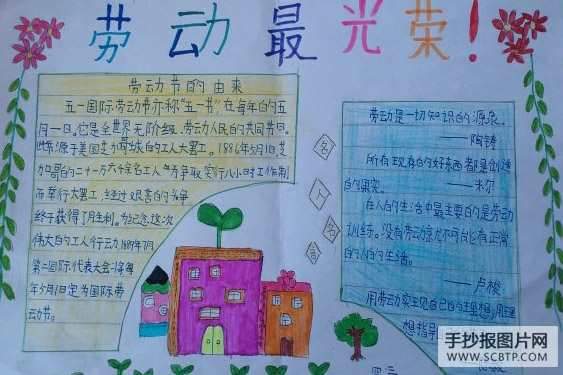 劳动最光荣!
劳动节的由来
五一国际劳动节亦称"五一节",在每年的五
月一日。它是全世界无阶级、劳动人民的共同节日。
此节源于美国芝加哥城的工人大罢工。1886年5月1日,芝
加哥的二十一万六千余名工人为争取实行八小时工作制
而举行大罢工,经过艰苦的斗争
终于获得了胜利。为纪念这次
伟大的工人行动,1889年7月
第二国际代表大会将每
年5月1日定为国际劳
动节。
名
人
名
言
劳动是一切知识的源泉。
——陶铸
所有现存的好东西都是创造
的果实。——米尔
在人的生活中最主要的是劳动
训练。没有劳动就不可能有正常
的人的生活。
——卢梭
用劳动实现自己的理想,用理
想指导
四三
手抄报图片网
WWW.SCBTP.COM